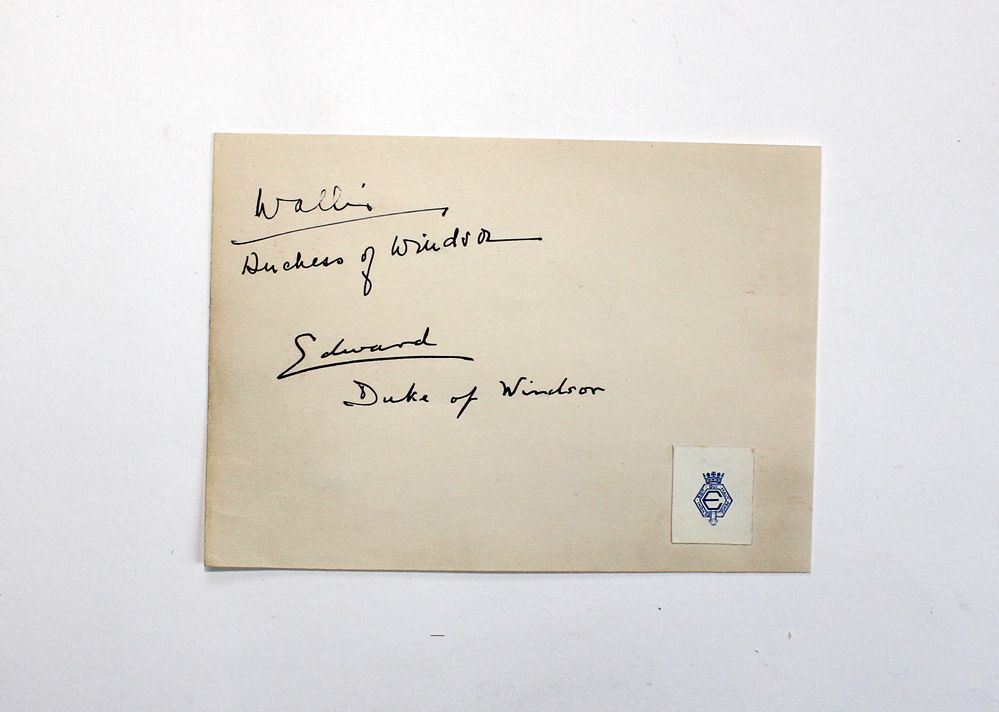 Wallis
Duchess of Windsor
Edward
Duke of Windsor
E